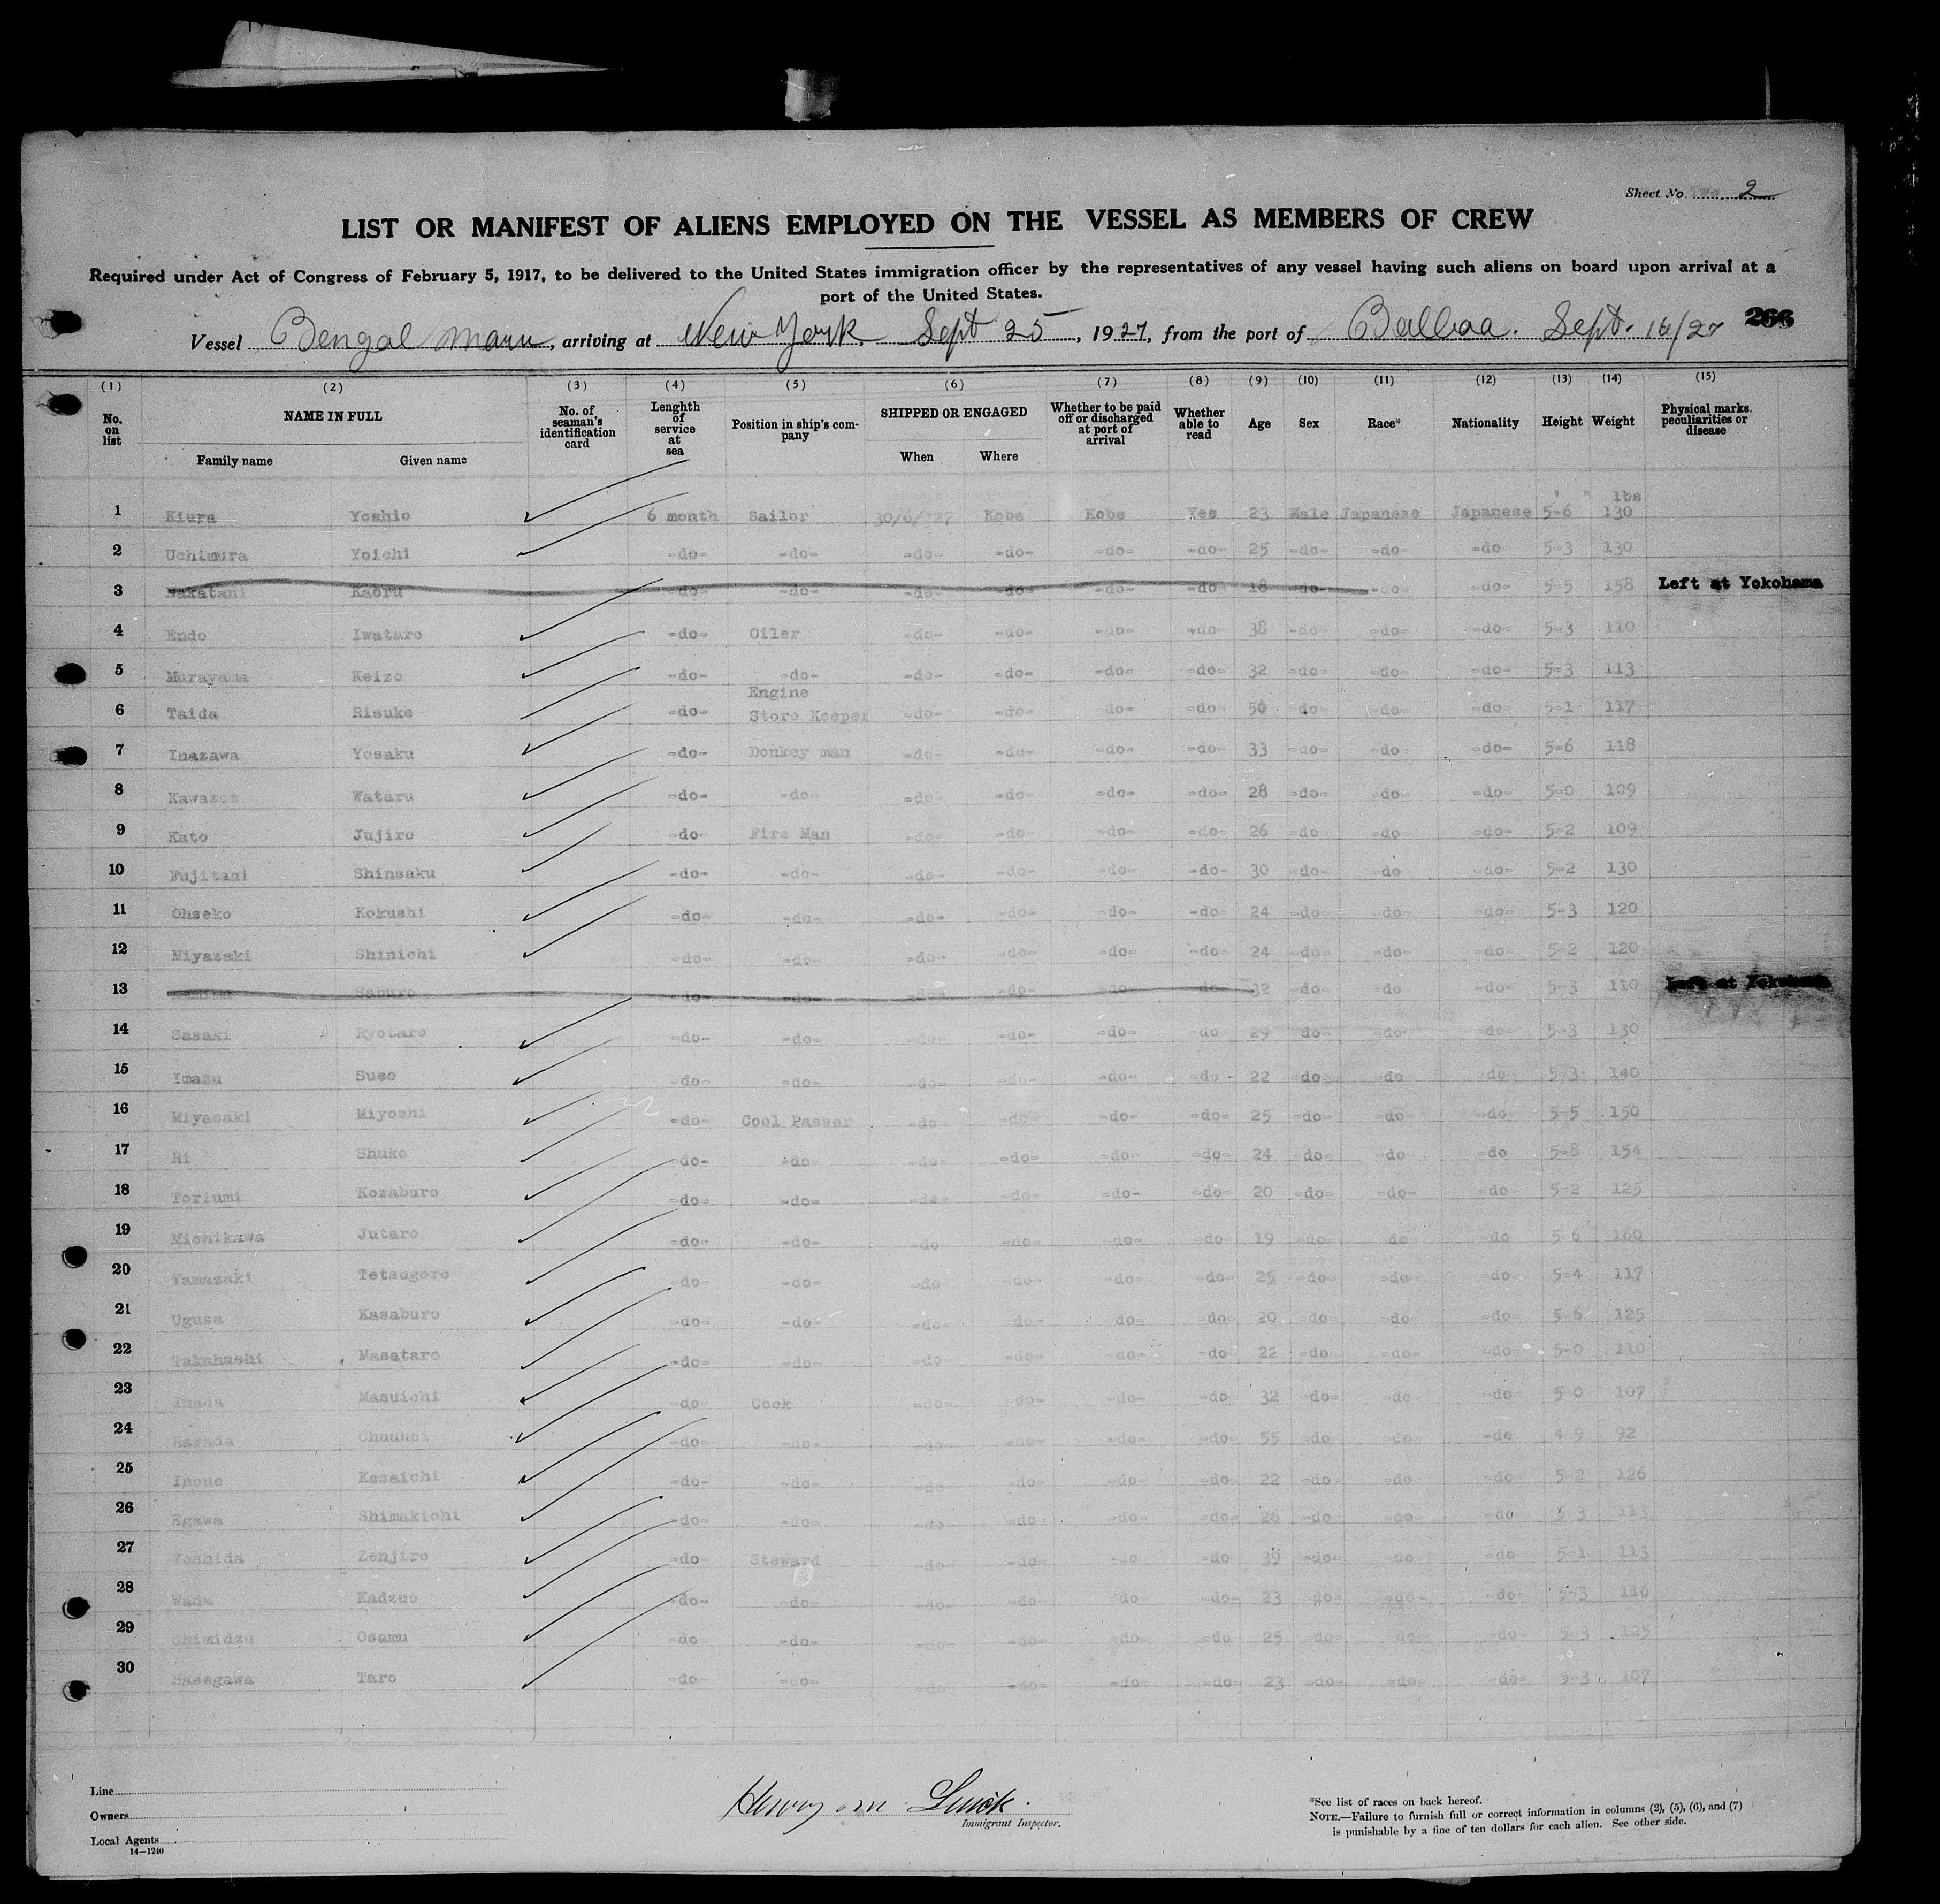 Sheet No. 2
LIST OR MANIFEST OF ALIENS EMPLOYED ON THE VESSEL AS MEMBERS OF CREW
Required under Act of Congress of February 5, 1917, to be delivered to the United States immigration officer by the representatives of any vessel having such aliens on board upon arrival at a
port of the United States.
266
Vessel Bengal Maru, arriving at New York, Sept 25, 1927, from the port of Balboa. Sept. 16/27
(1) (2) (3) (4) (5) (6) (7) (8) (9) (10) (11) (12) (13) (14) (15)
No. on list NAME IN FULL No. of seaman's identification card Lenghth of service at sea Position in ship's company SHIPPED OR ENGAGED Whether to be paid off or discharged at port of arrival Whether able to read Age Sex Race* Nationality Height Weight Physical marks, peculiarities or disease
Family name Given name When Where
1 Kiura Yoshio 6 month Sailor 30/6/'27 Kobe Kobe Yes 23 Male Japanese Japanese 5-6 lbs 130
2 Uchimura Yoichi -do- -do- -do- -do- -do- -do- 25 -do- -do- -do- 5-3 130
3 Nakatani Kaoru -do- -do- -do- -do- -do- -do 18 -do- -do- -do- 5-5 158 Left at Yokohama
4 Endo Iwataro -do- Oiler -do- -do- -do- -do- 38 -do- -do- -do- 5-3 110
5 Murayama Keizo -do- -do- -do- -do- -do- -do- 32 -do- -do- -do- 5-3 113
6 Taida Risuke -do- Engine Store Keeper -do- -do- -do- -do- 50 do- -do- -do- 5-1 117
7 Inazawa Yosaku -do- Donkey man -do- -do- -do- -do- 33 -do- -do -do- 5-6 118
8 Kawazoe Wataru -do- -do- -do- -do- -do- -do- 28 -do- -do- -do- 5-0 109
9 Kato Jujiro -do- Fire Man -do- -do- -do- -do- 26 -do -do -do- 5-2 109
10 Fujitani Shinsaku -do- -do- -do- -do- -do- -do- 30 -do- -do -do- 5-2 130
11 Ohseko Kokushi -do- -do- -do- -do- -do- -do- 24 -do- -do- -do- 5-3 120
12 Miyazaki Shinichi -do- -do- -do- -do- -do- -do- 24 -do -do- -do- 5-2 120
13 Saburo -do- -do- -do- -do- -do- do- 32 -do -do- -do- 5-3 110 Left at Yokohama
14 Sasaki Ryotaro -do- -do- -do- -do- -do- -do 29 do- -do- -do 5-3 130
15 Imazu Sueo -do- -do- -do- -do- -do- -do- 22 -do -do -do 5-3 140
16 Miyasaki Miyoshi -do- Cool Passer -do- -do- -do- -do- 25 -do- -do -do 5-5 150
17 Ri Shuko -do- -do -do- -do- -do- -do- 24 -do- -do -do 5-8 154
18 Toriumi Kozaburo -do- -do- -do- -do- -do- -do- 20 -do- -do- -do 5-2 125
19 Michikawa Jutaro -do- -do- -do -do- -do- -do 19 -do- do -do 5 6 160
20 Yamazaki Tetsugoro -do- -do- -do -do- -do- -do- 25 -do- -do- -do- 5-4 117
21 Ugusa Kasaburo -do- -do- -do- -do- do- do- 20 -do -do -do- 5 6 125
22 Takahashi Masataro -do- -do- -do- -do- -do- -do 22 -do -do- -do- 5-0 110
23 Inada Masuichi do- Cook -do- -do- -do- -do 32 -do- -do- -do 5 0 107
24 Harada Chuuhei -do- -do- -do- -do- -do- -do- 55 -do -do -do 4 9 92
25 Inoue Kesaichi -do- -do- -do- -do- -do- -do- 22 -do -do -do 5-2 126
26 Egawa Shimakichi -do- -do- -do -do- -do- -do- 26 -do -do- -do 5 3 113
27 Yoshida Zenjiro -do Steward -do -do- -do -do 39 -do- do -do 5-1 113
28 Wada Kadzuo -do- -do -do- -do- -do -do- 23 do- -do- -do 5-3 116
29 Shimidzu Osamu -do -do- -do- -do- -do- -do 25 do- do- -do- 5-3 125
30 Hasegawa Taro -do -do- -do -do- -do -do- 23 -do- -do- -do- 5-3 107
Line
Owners
Local Agents
14—1240
Henry M.
Immigrant Inspector.
*See list of races on back hereof.
NOTE.—Failure to furnish full or correct information in columns (2), (5), (6), and (7)
is punishable by a fine of ten dollars for each alien. See other side.